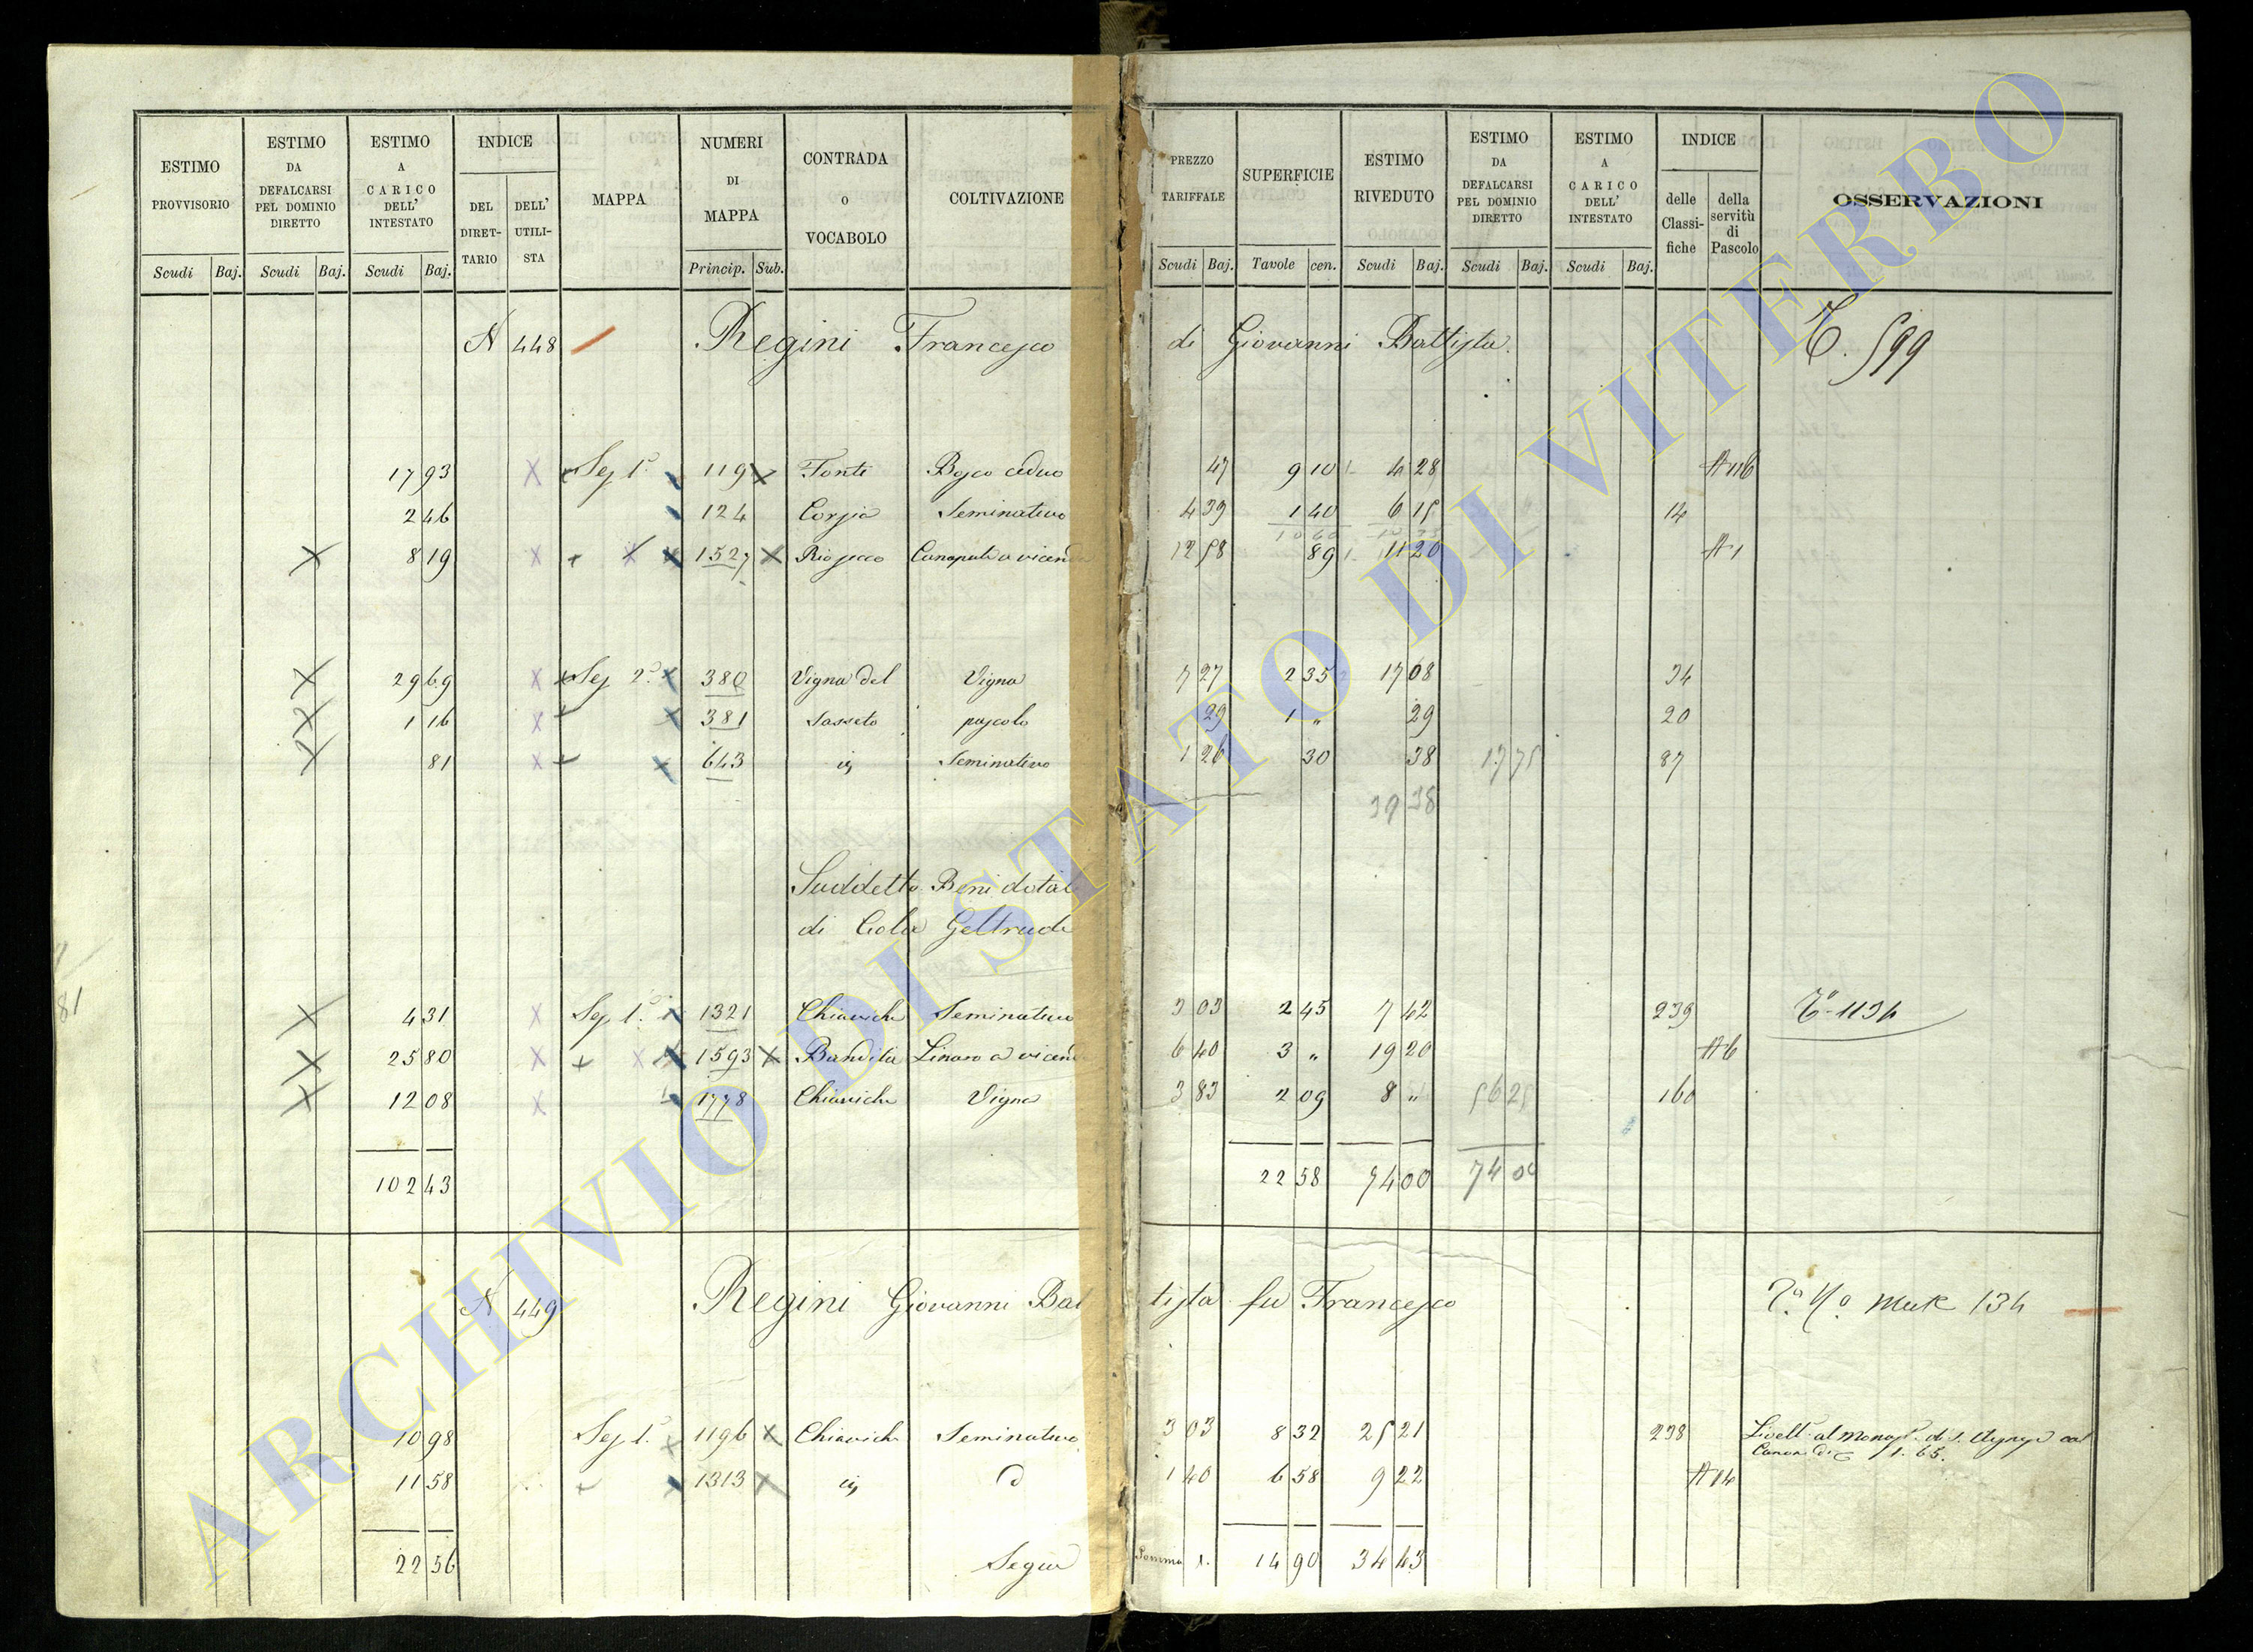 ESTIMO PROVVISORIO
ESTIMO DA DEFALCARSI PEL DOMINIO DIRETTO
ESTIMO A CARICO DELL' INTESTATO
INDICE
DEL DIRET-TARIO
DELL' UTILI-STA
MAPPA
NUMERI DI MAPPA
CONTRADA O VOCABOLO
COLTIVAZIONE
PREZZO TARIFFALE
SUPERFICIE
ESTIMO RIVEDUTO
ESTIMO DA DEFALCARSI PEL DOMINIO DIRETTO
ESTIMO A CARICO DELL' INTESTATO
INDICE
delle Classi-fiche
della servitù di Pascolo
OSSERVAZIONI
Scudi Baj. Scudi Baj. Scudi Baj. Princip. Sub. Scudi Baj. Tavole cen. Scudi Baj. Scudi Baj. Scudi Baj.
N 448 Regini Francesco di Giovanni Battista. 599
17 93 X Sez 1ª 119 X Fonte Bosco ceduo 47 9 10 4 28
2 46 124 Seminativo 4 39 1 40 6 15 14
X 8 19 X 1527 X Riosecco Canapule a vicend 12 58 89 11 20 A 1
X 29 69 X Sez 2ª 380 Vigna del Vigna 7 27 2 35 17 08 34
X 1 16 X 381 Sasseto pascolo 29 1 " 29 20
X 81 X 643 Seminativo 1 26 30 38 17 75 87
39 38
Suddetto Beni dotal
di Cola Geltrude
X 4 31 X Sez 1ª 1321 Chiaviche Seminativo 3 03 2 45 7 42 239 1134
X 25 80 X X 1593 X Bandita Linaro a vicend 6 40 3 " 19 20 A 6
X 12 08 X 1778 Chiaviche Vigna 3 83 2 09 8 " 56 25 160
102 43 22 58 74 00 74 00
N 449 Regini Giovanni Battista fu Francesco 134
10 98 Sez 1ª 1196 X Chiaviche Seminativo 3 03 8 32 25 21 238 Livell. al Monast. di S. col
Canone di 1.65.
11 58 1313 X 1 40 6 58 9 22 A 14
22 56 Segue Somma 14 90 34 43
ARCHIVIO DI STATO DI VITERBO